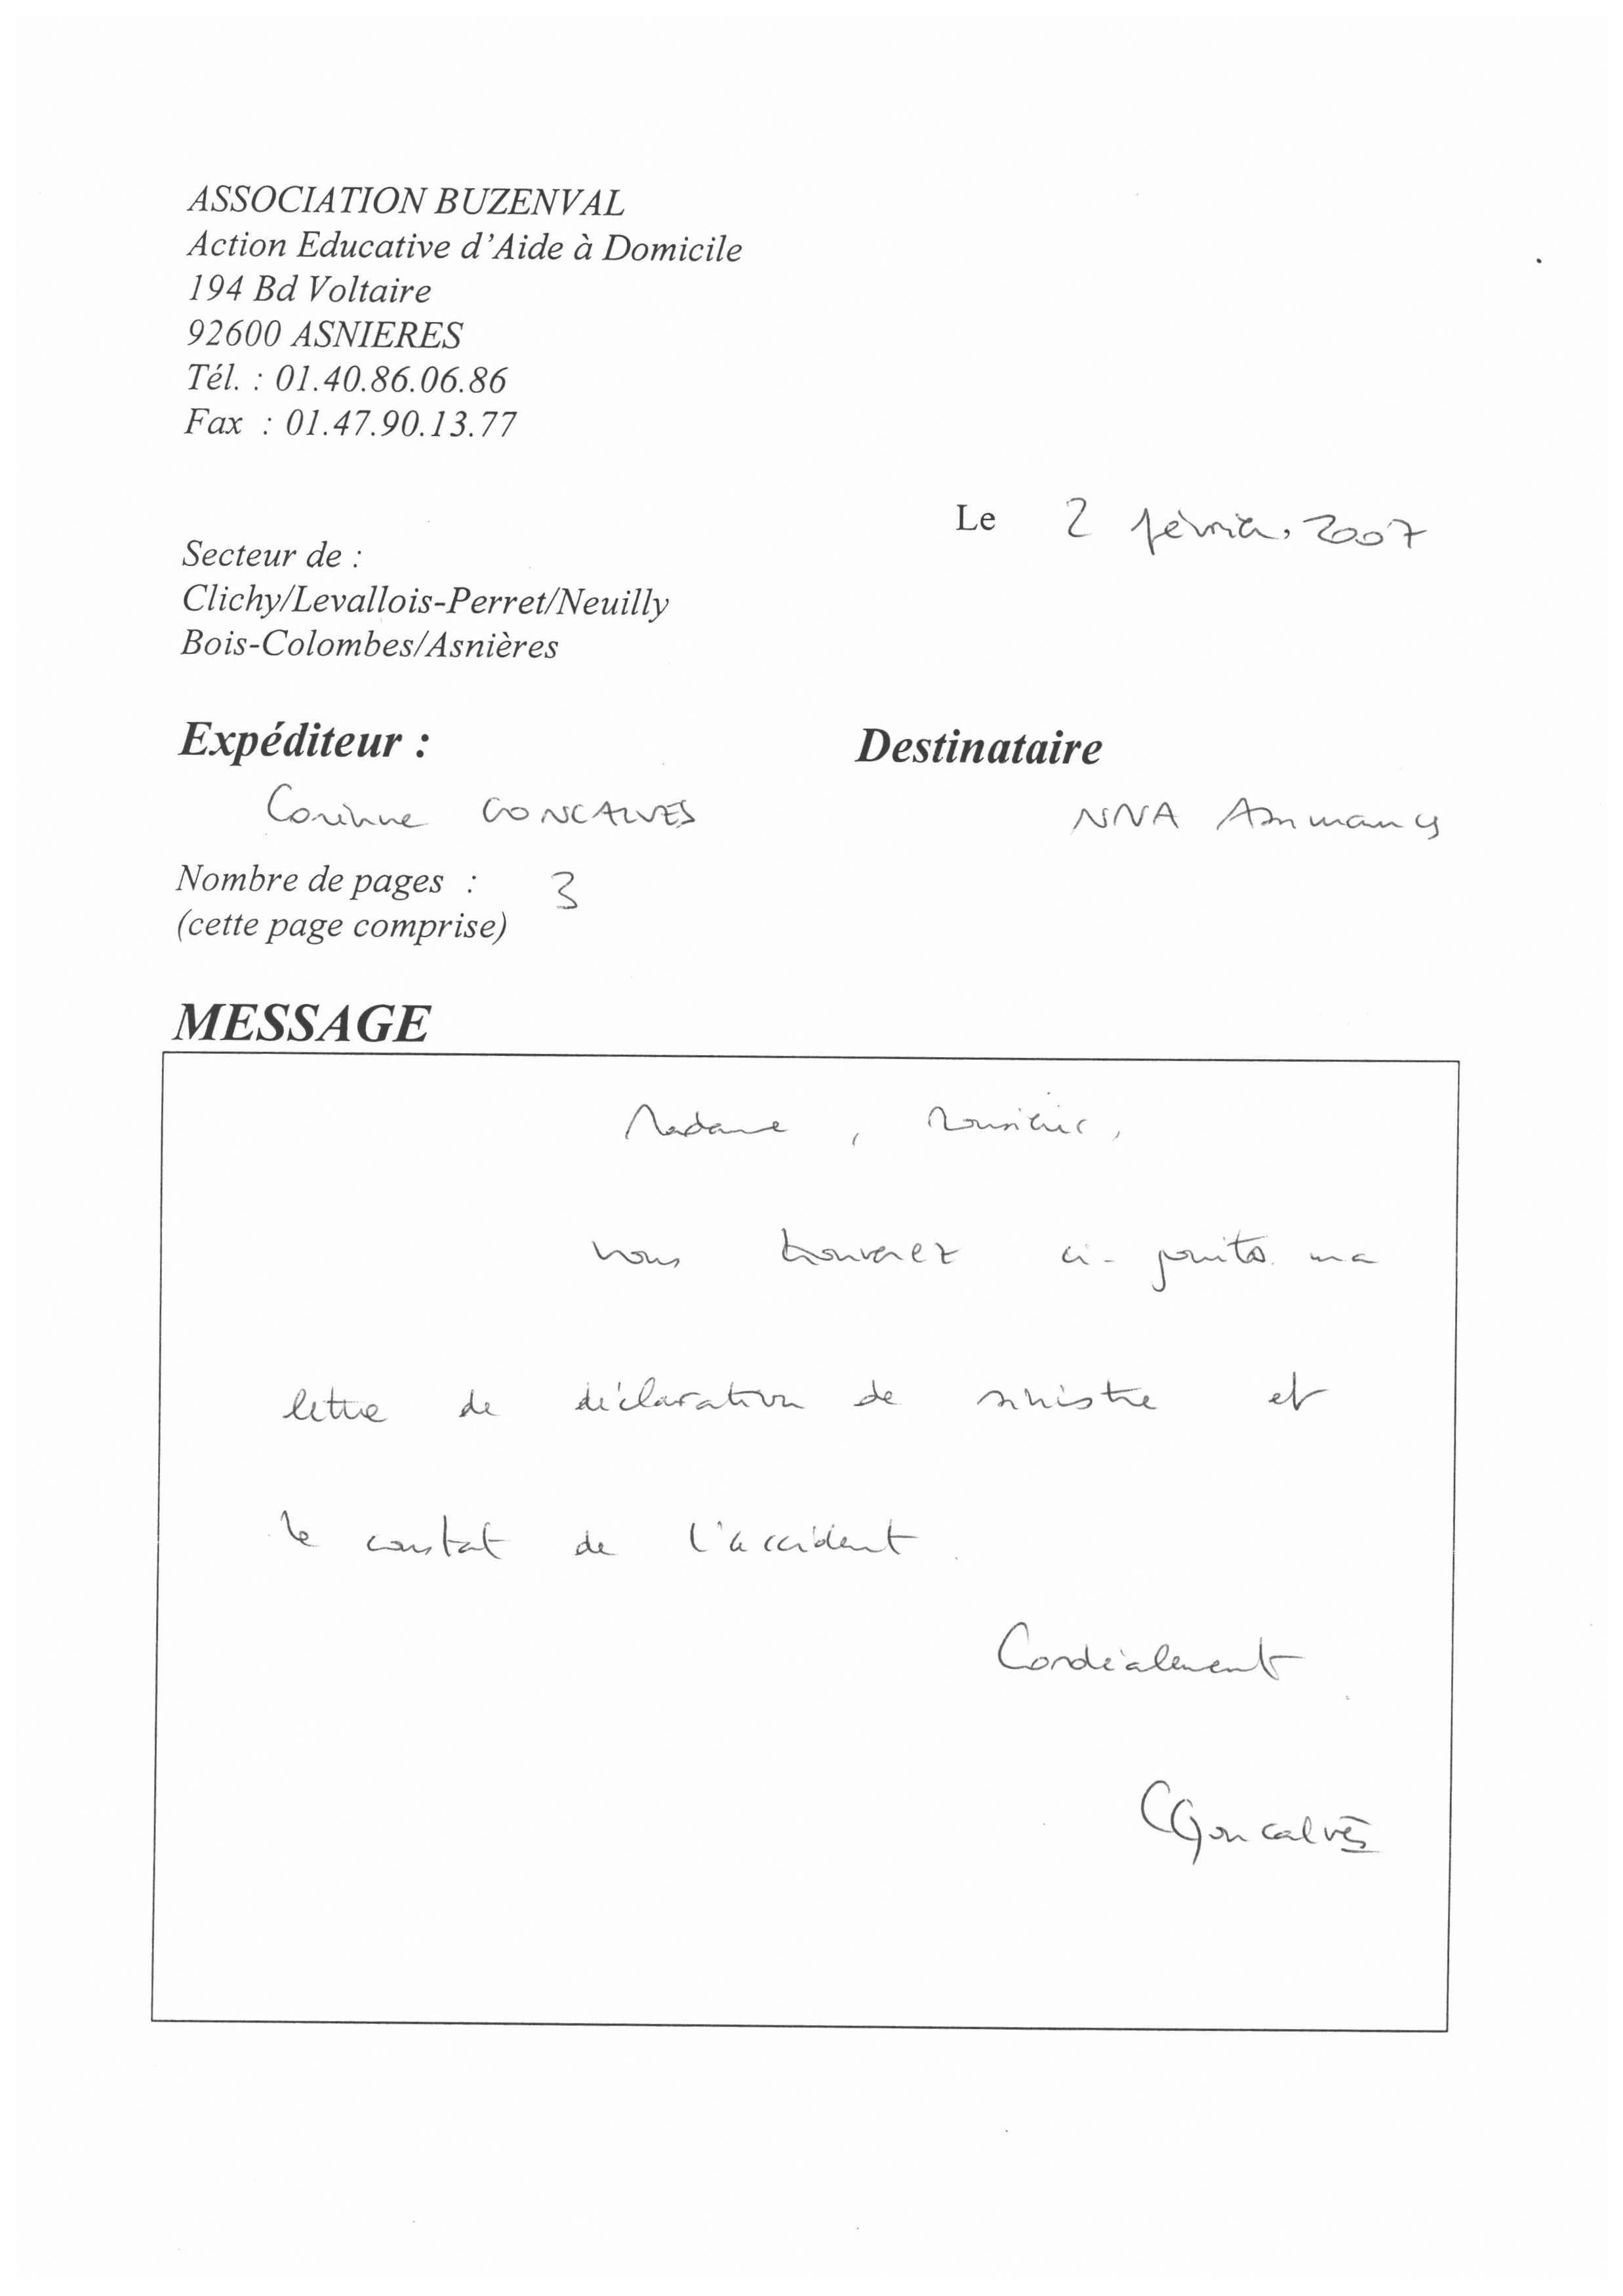 ASSOCIATION BUZENVAL
Action Educative d'Aide à Domicile
194 Bd Voltaire
92600 ASNIERES
Tél. : 01.40.86.06.86
Fax : 01.47.90.13.77
Le 2 février 2007
Secteur de :
Clichy/Levallois-Perret/Neuilly
Bois-Colombes/Asnières
Expéditeur :
Destinataire
Corinne GONCALVES
NNA
Nombre de pages : 3
(cette page comprise)
MESSAGE
Madame, Monsieur,
vous trouverez ci-joints ma
lettre de déclaration de sinistre et
le constat de l'accident.
Cordialement
CGoncalves